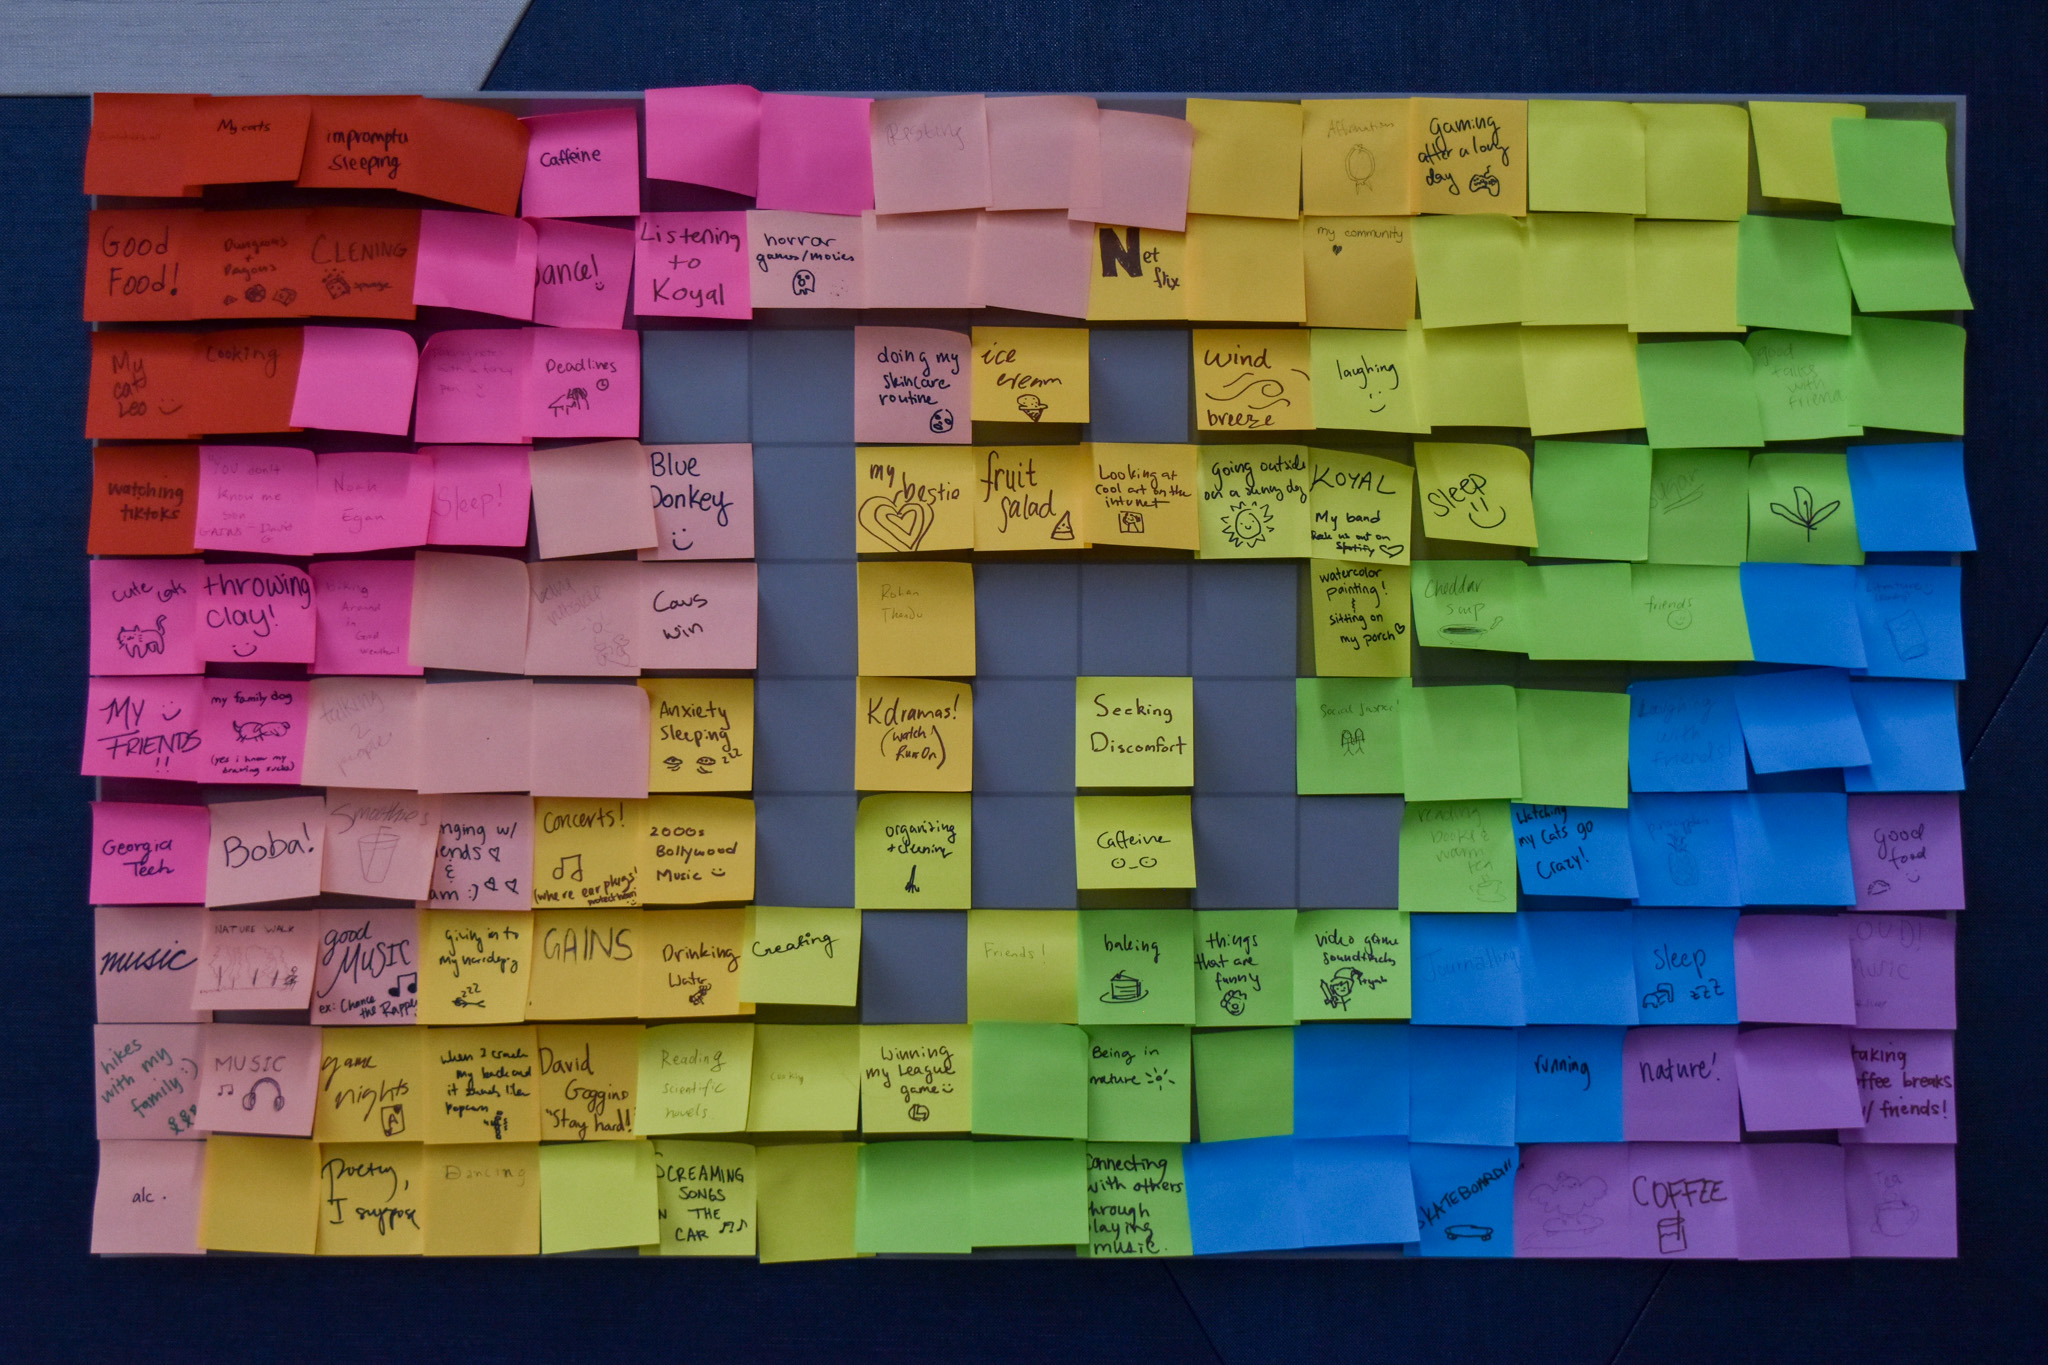 My cats
impromptu
sleeping
Caffeine
Affirmations
Gaming
after a long
day
Good
Food!
Dungeons
+
Dragons
CLENING
sponge
ance!
Listening
to
Koyal
horror
games/movies
Net
flix
my community
My
cat
Leo
Cooking
Deadlines
doing my
skincare
routine
ice
cream
wind
breeze
laughing
good
talks
with
friend
watching
tiktoks
You don't
know me
son
David
Noah
Egan
Sleep!
Blue
Donkey
my bestie
fruit
salad
Looking at
cool art on the
intunet
going outside
on a sunny day
KOYAL
My band
on
Spotify
Sleep
cute cats
throwing
clay!
Around
in
Good
weather!
Cavs
win
Rohan
watercolor
painting!
&
sitting on
my porch
Cheddar
soup
friends
MY
FRIENDS
!!
my family dog
(yes i know my
drawing sucks)
talking
2
people
Anxiety
Sleeping
zzz
Kdramas!
(watch
Run On)
Seeking
Discomfort
Social justice!
Laughing
with
friends!
Georgia
Tech
Boba!
Smoothies
nging w/
iends
&
am :)
Concerts!
(where ear plugs!
2000s
Bollywood
Music
organizing
+ cleaning
Caffeine
reading
books &
warm
tea
Watching
my cats go
Crazy!
good
food
music
NATURE WALK
good
MUSIC
ex: Chance
the Rapper
giving in to
my narcolepsy
zzz
GAINS
Drinking
Water
Creating
Friends!
baking
things
that are
funny
video game
soundtracks
Journalling
sleep
zzz
OUD!
Music
hikes
with my
family :)
MUSIC
game
nights
A
when I crack
my back and
it sounds like
popcorn
David
Goggins
"Stay hard!"
Reading
scientific
novels
Cooking
Winning
my League
game
Being in
nature
running
nature!
taking
ffee breaks
w/ friends!
alc.
Poetry,
I suppose
Dancing
SCREAMING
SONGS
N THE
CAR
Connecting
with others
hrough
laying
music.
SKATEBOARDIN
COFFEE
Tea